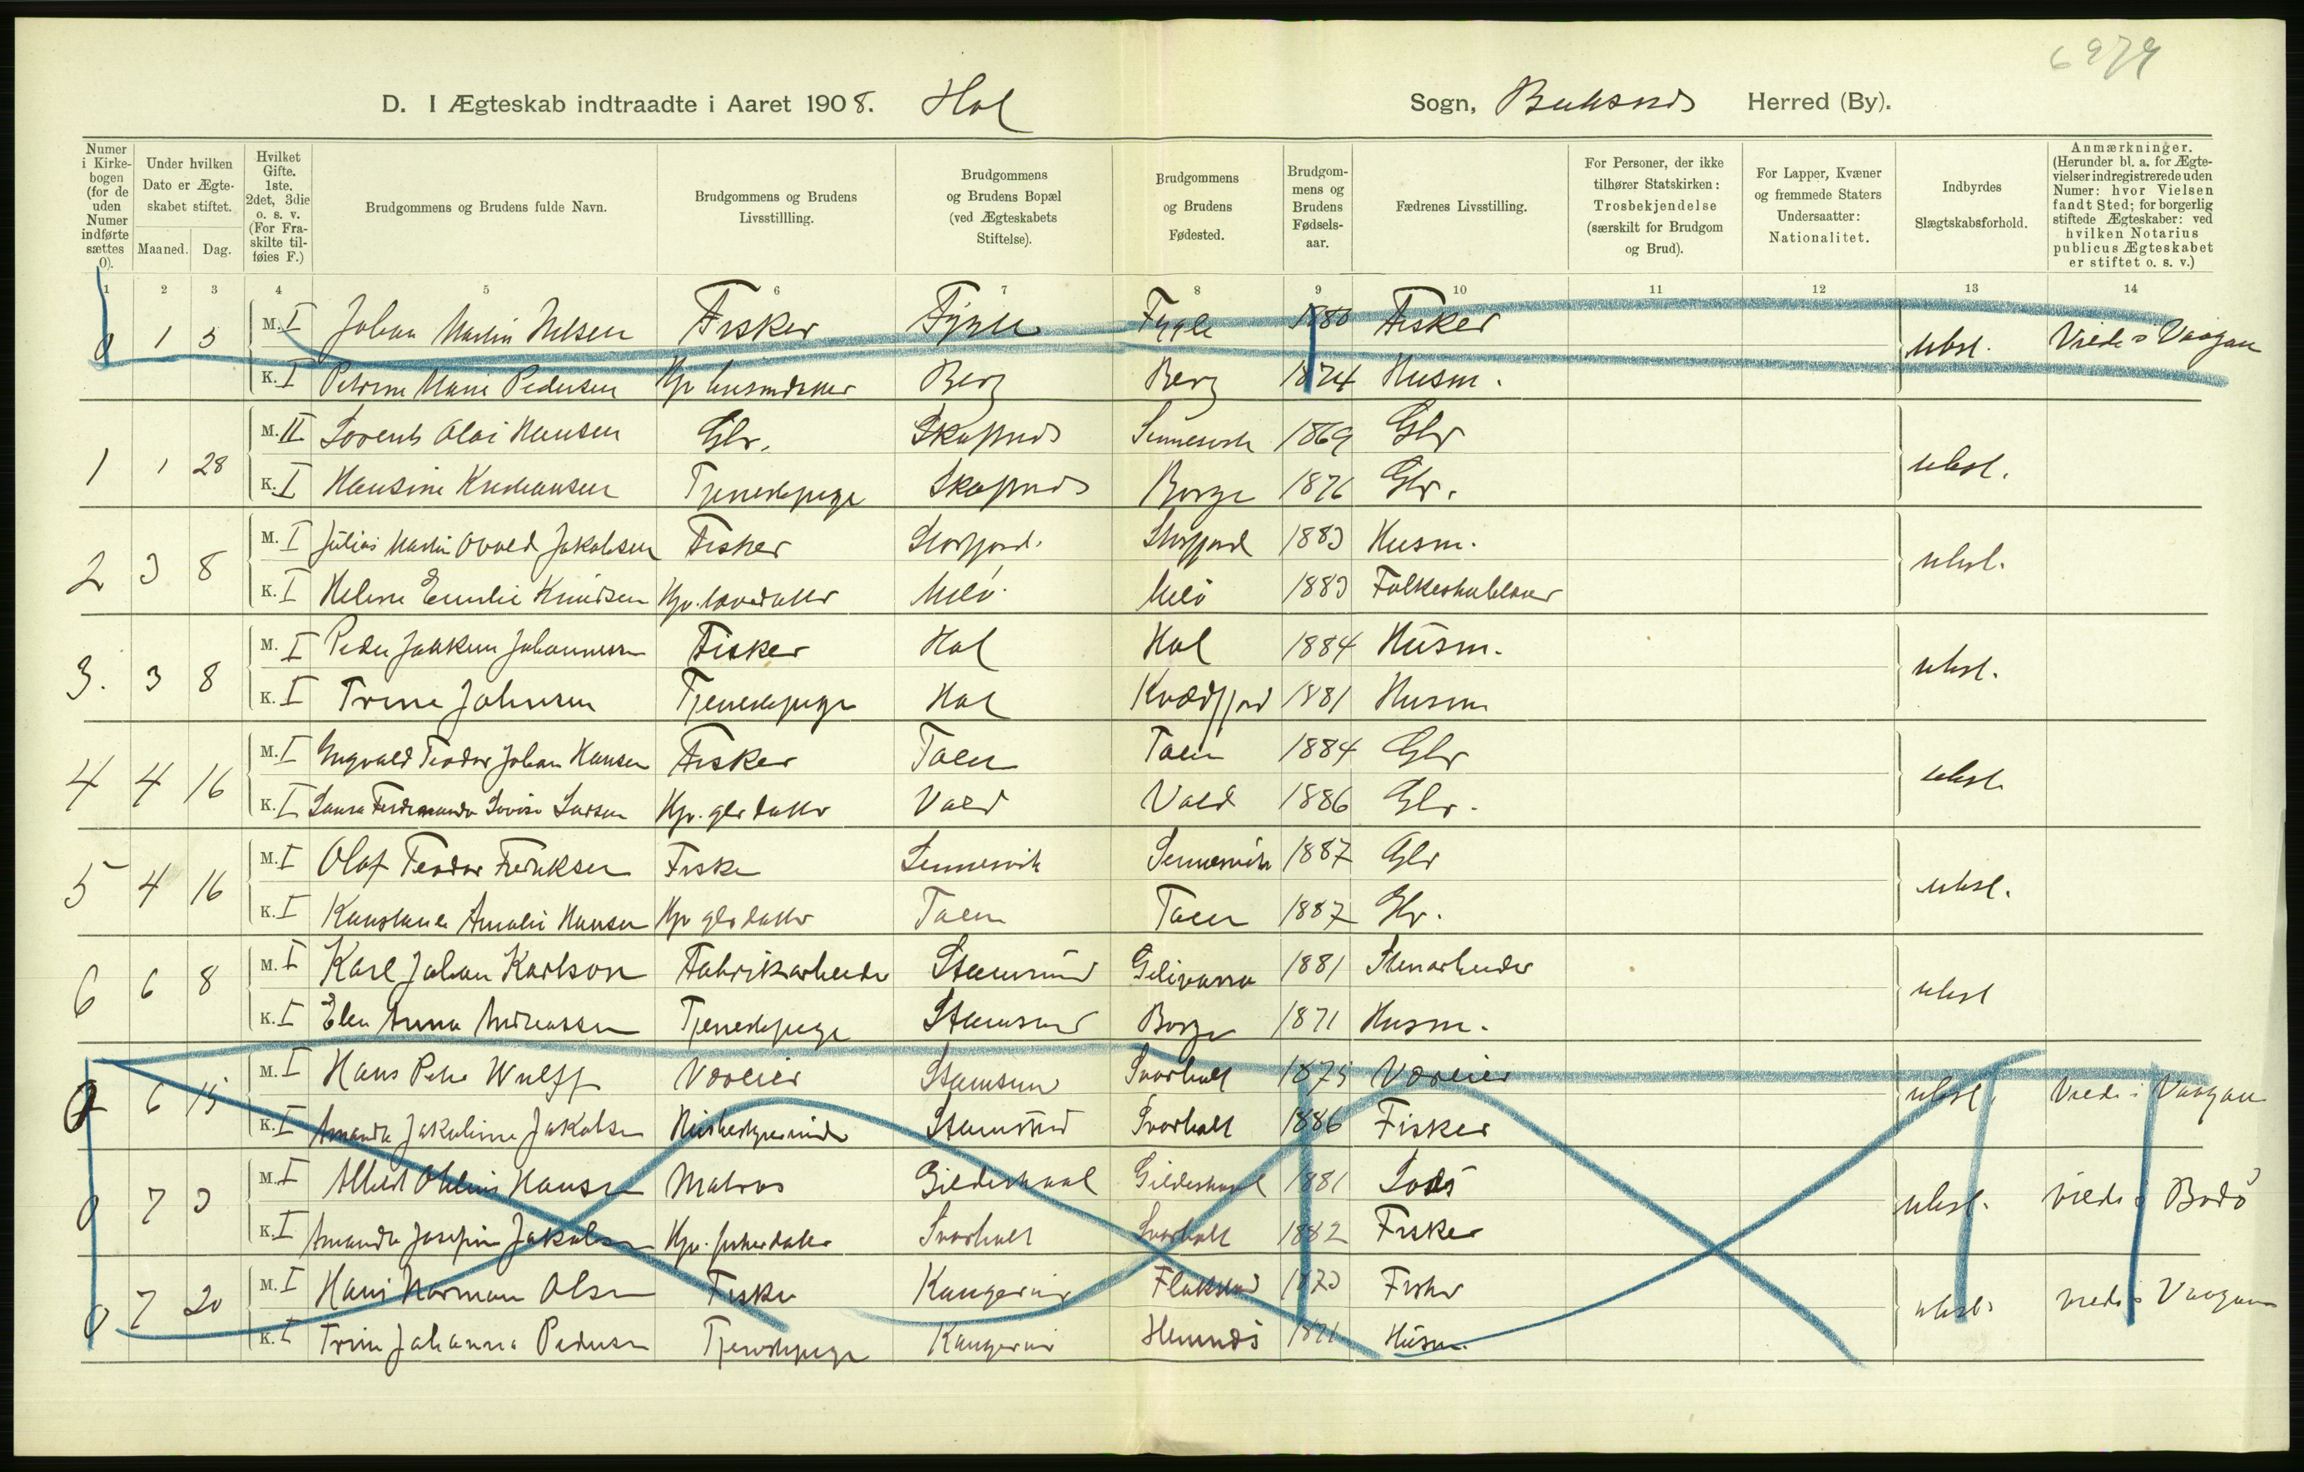 6979
D. I Ægteskab indtraadte i Aaret 1908. Hol Sogn, Buksnes Herred (By).
Numer i Kirkebogen (for de uden Numer indførte sættes 0).
Under hvilken Dato er Ægteskabet stiftet.
Maaned. Dag.
Hvilket Gifte. 1ste. 2det, 3die o. s. v. (For Fraskilte tilføies F.)
Brudgommens og Brudens fulde Navn.
Brudgommens og Brudens Livsstillling.
Brudgommens og Brudens Bopæl (ved Ægteskabets Stiftelse).
Brudgommens og Brudens Fødested.
Brudgommens og Brudens Fødselsaar.
Fædrenes Livsstilling.
For Personer, der ikke tilhører Statskirken: Trosbekjendelse (særskilt for Brudgom og Brud).
For Lapper, Kvæner og fremmede Staters Undersaatter: Nationalitet.
Indbyrdes Slægtskabsforhold.
Anmærkninger. (Herunder bl. a. for Ægtevielser indregistrerede uden Numer: hvor Vielsen fandt Sted; for borgerlig stiftede Ægteskaber: ved hvilken Notarius publicus Ægteskabet er stiftet o. s. v.)
1 2 3 4 5 6 7 8 9 10 11 12 13 14
0 1 5 M. I Johan Martin Nilsen Fisker Fygle Fygle 1880 Fisker ubsl. Viede i Vaagan
K. I Petrine Marie Pedersen Hjv. husmdatter Berg Berg 1874 Husm.
1 1 28 M. II Lorents Olai Hansen Gbr. Skafsnes Sennesvik 1869 Gbr ubsl.
K. I Hansine Kristiansen Tjenestepige Skafsnes Borge 1876 Gbr.
2 3 8 M. I Julius Martin Osvald Jakobsen Fisker Storfjord. Storfjord 1883 Husm. ubsl.
K. I Helene Emilie Knudsen Ure 1883 Folkeskolelærer
3. 3 8 M. I Peder Joakim Johannessen Fisker Hol Hol 1884 Husm. ubsl.
K. I Trine Johnsen Tjenestepige Hol Kvædfjord 1881 Husm
4 4 16 M. I Ingvald Teodor Johan Hansen Fisker Taen Taen 1884 Gbr ubsl.
K. I Laura Ferdinanda Lovise Larsen Hjv. gbr datter Vold Vold 1886 Gbr.
5 4 16 M. I Olaf Teodor Fredriksen Fisker Sennesvik Sennesvik 1887 Gbr ubsl.
K. I Konstance Amalie Hansen Hjv gbr datter Taen Taen 1887 Gbr.
6 6 8 M. I Karl Johan Karlson Fabrikarbeider Stamsund Gelivara 1881 Stenarbeider ubsl
K. I Elen Anna Andreassen Tjenestepige Stamsund Borge 1871 Husm.
0 6 15 M. I Hans Peter Wulff Væreier Stamsund Svarholt 1875 Væreier ubsl. Viede i Vaagan
K. I Amanda Jakobine Jakobsen Husbestyrerinde Stamsund Svarholt 1886 Fisker
0 7 3 M. I Albert Hansen Matros Gildeskaal Gildeskaal 1881 Lods ubsl. viede i Bodø
K. I Amanda Josefine Jakobsen Hjv. fiskerdatter Svarholt Svarholt 1882 Fisker
0 7 20 M. I Hans Norman Olsen Fisker Kangerur Flakstad 1873 Fisker ubsl. viede i Vaagan
K. I Trine Johanna Pedersen Tjenestepige Kangerur Hemnes 1871 Husm.